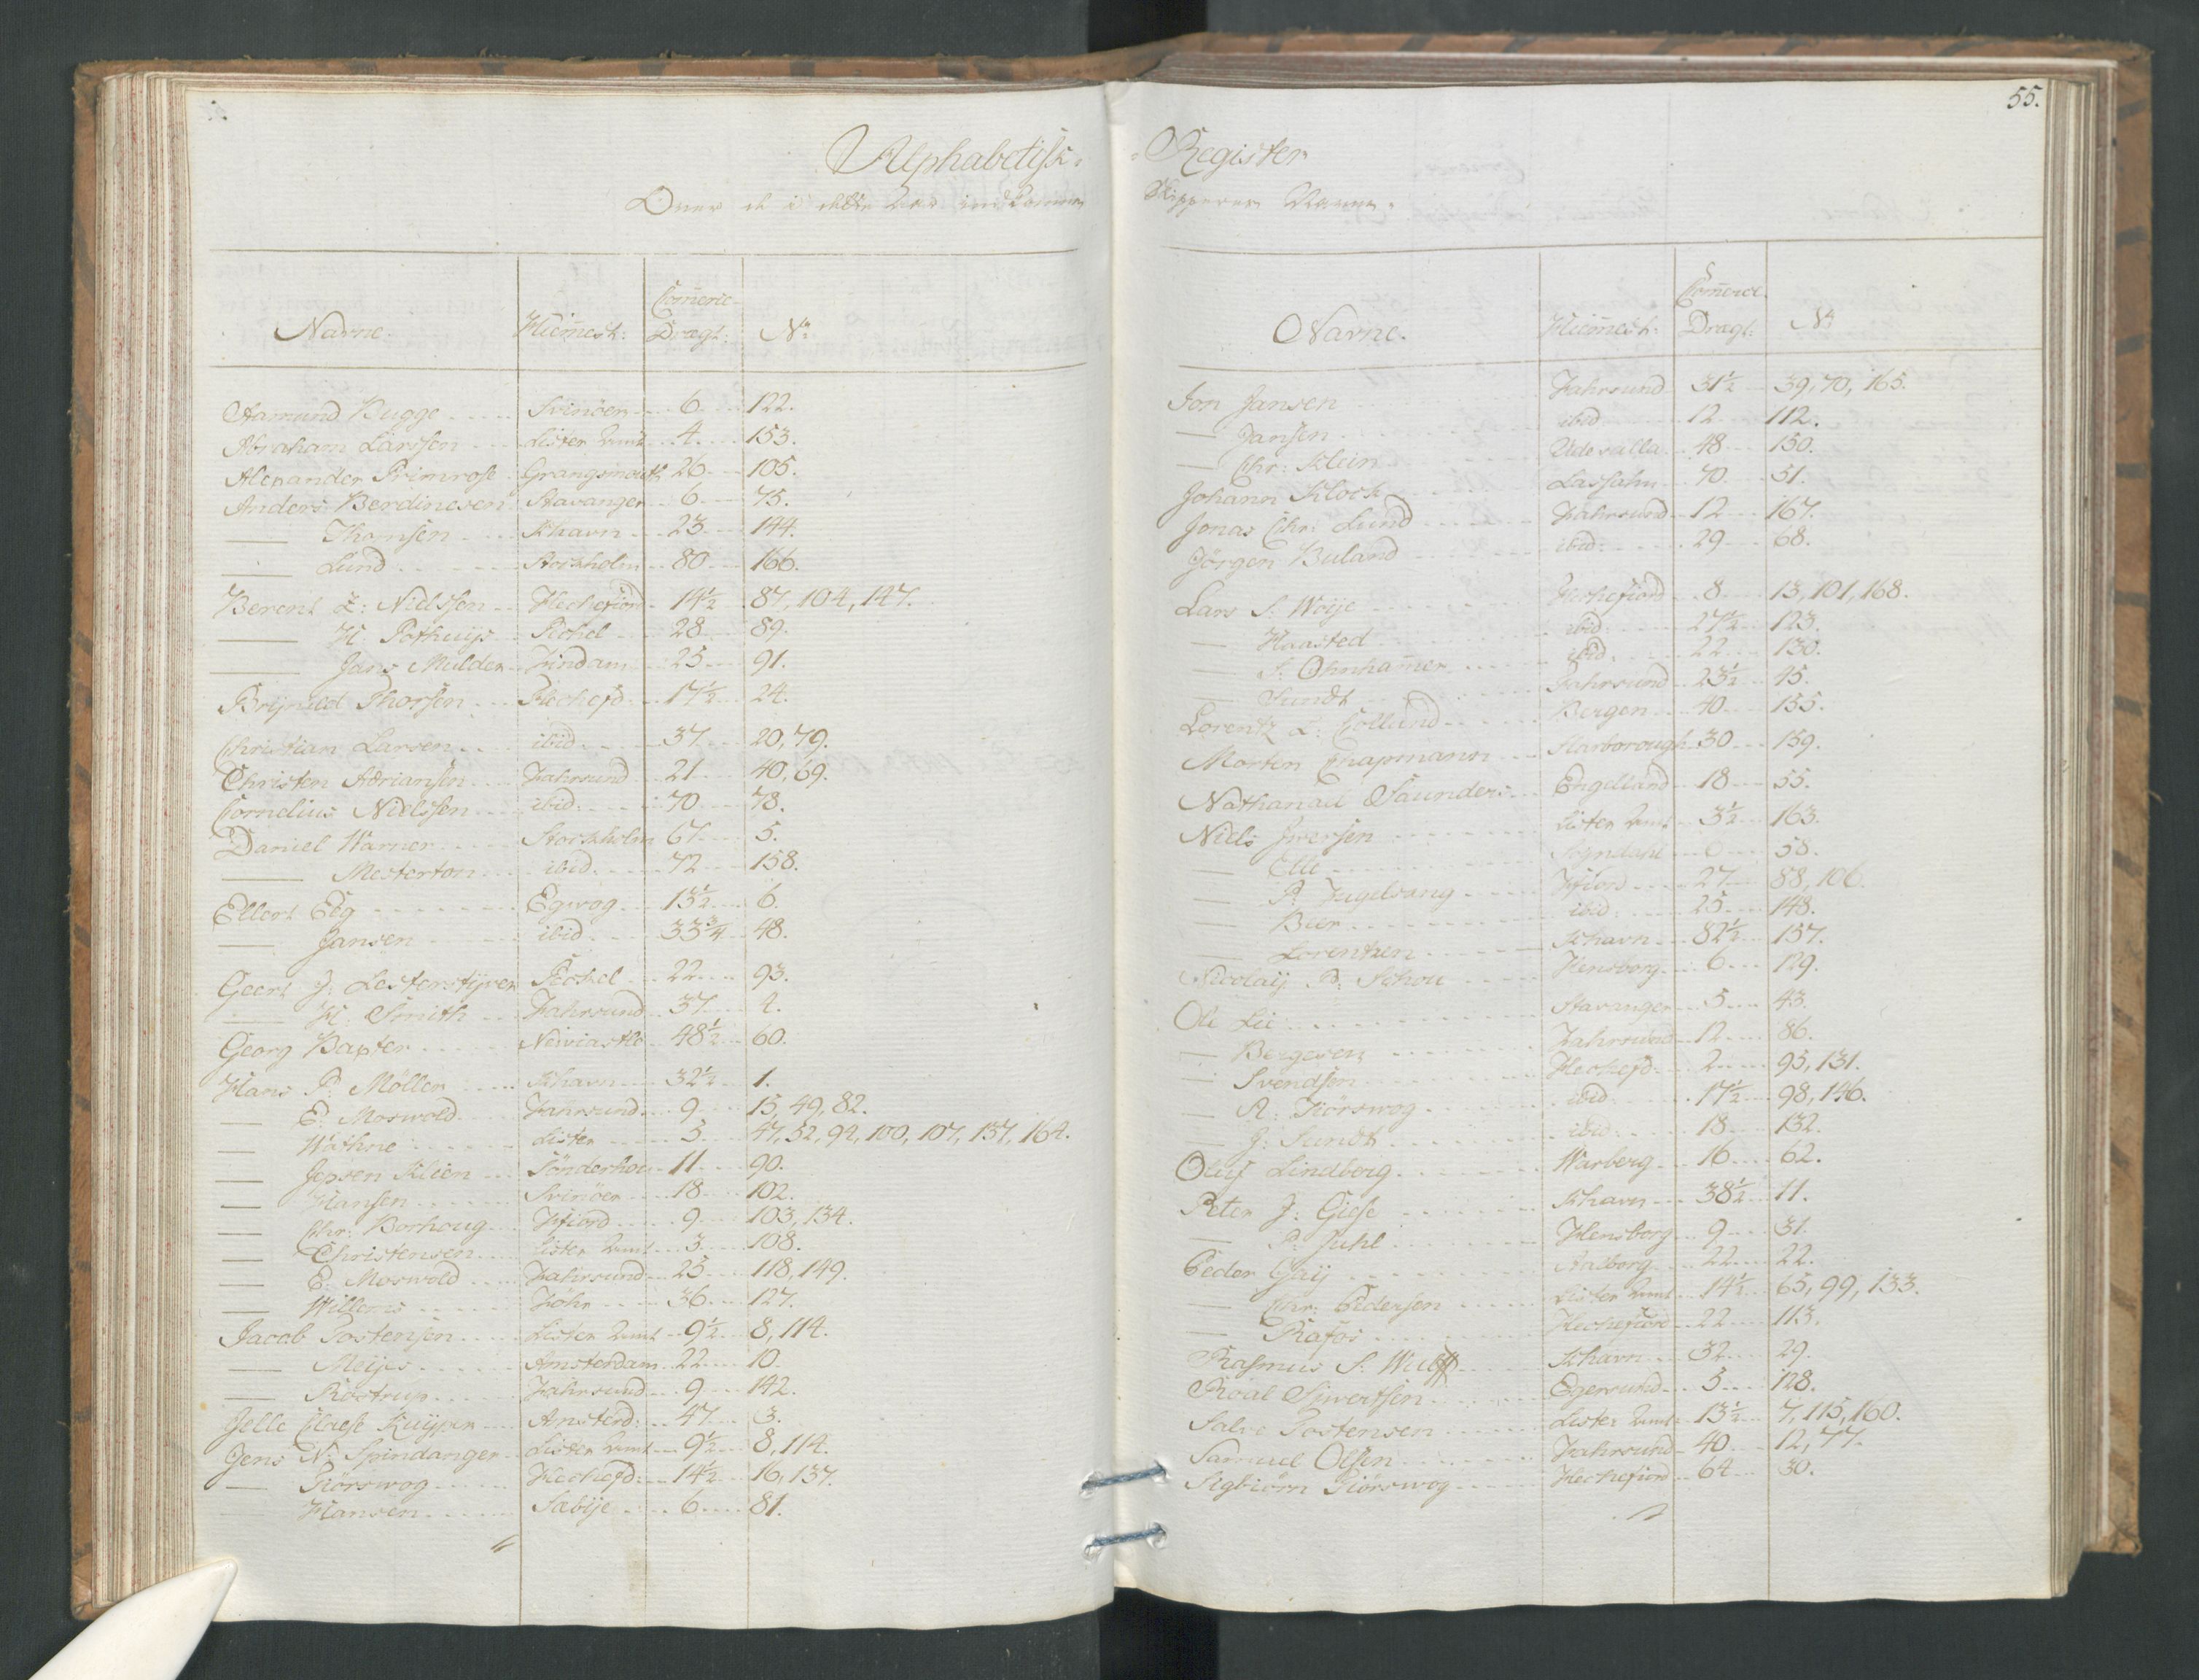 55.
Alphabetisk- -Register
Over de i dette Aar indkomne Skipperes Navne.
Navne. Hiem̅est: Com̅erce Drægt: No
Aamund Bugge Svinöer 6 122.
Abraham Larssen Lister Amt 4 153.
Alexander Primrose Grangsmouth 26 105.
Anders Berdinesen Stavanger 6 75.
— Thomsen Khavn 23 144.
— Lund Stockholm 80 166.
Berent L: Nielssen Flechefiord 14½ 87, 104, 147.
— H. Pothuijs Pechel 28 89.
— Jans Mulder Zindam 25 91.
Brijnild Thorsen Flechefd 17½ 24.
Christian Larsen ibid. 37 20, 79.
Christen Adriansen Fahrsund 21 40, 69.
Cornelius Nielssen ibid: 70 78.
Daniel Warner Stockholm 67 5.
— Mesterton ibid. 72 158.
Ellert Eeg Egvog 13½ 6.
— Jansen ibid. 33¾ 48.
Geert J: Lestenstijver Pechel 22 93.
— H. Smith Fahrsund 37 4.
Georg Baxter Neuwcastle 48½ 60.
Hans P. Möller Khavn 32½ 1.
— E. Moswold Fahrsund 9 15, 49, 82.
— Wathne Lister 5 47, 52, 94, 100, 107, 137, 164.
— Jepsen Klien Sönderhou 11 90.
— Hansen Svinöer 18 102.
— Chr: Borhoug Ffiord 9 103, 134.
— Christensen Lister Amt 3 108.
— E. Moswold Fahrsund 25 118, 149.
— Willems Föhr 36 127.
Jacob Tostensen Lister Amt 9½ 8, 114.
— Meijes Amsterdam 22 10.
— Rostrup Fahrsund 9 142.
Jelle Claese Kuijper Amsterd: 47 3.
Jens N: Spindanger Lister Amt 9½ 8, 114.
— Tiörswog Flechefd: 14½ 16, 137.
— Hansen Sæbije 6 81.
Navne. Hiem̅est: Com̅erce Drægt: No
Jon Jansen Fahrsund 31½ 39, 70, 165.
— Jansen ibid 12 112.
— Chr: Klein Udevalla 48 150.
Johann Klock Lassahn 70 51.
Jonas Chr: Lund Fahrsund 12 167.
Jörgen Buland ibid: 29 68.
Lars S. Woije Flechefiord 8 13, 101, 168.
— Haasted ibid: 27½ 123.
— S. Ohnham̅er ibid. 22 130.
— Sundt Fahrsund 23½ 45.
Lorentz L: Collund Bergen 40 155.
Morten Chapmann Skarborough 30 159.
Nathanael Saunders Engelland 18 55.
Niels Iwersen Lister Amt 3½ 163.
— Elle Sogndahl 6 58.
— P. Fugelvang Ffiord 27 88, 106.
— Beer ibid: 25 148.
— Lorentzen Khavn 82½ 157.
Nicolaij P: Schou Flensborg 6 129.
Ole Lie Stavanger 5 43.
— Bergesen Fahrsund 12 86.
— Svendsen Flechefd. 2 95, 131.
— A: Tiörswog ibid: 17½ 98, 146.
— J: Sundt ibid: 18 132.
Oluf Lindberg Warberg 16 62.
Peter J: Giese Khavn 38½ 11.
— P: Juhl Flensborg 9 31.
Peder Gaij Aalborg 22 22.
— Chr: Pedersen Lister Amt 14½ 65, 99, 133.
— Rafos Flechefiord 22 113.
Rasmus S. Wulff Khavn 32 29.
Roal Siwertsen Egersund 5 128.
Salve Tostensen Lister Amt 13½ 7, 115, 160.
Samuel Olsen Fahrsund 40 12, 77.
Sigbiörn Tiörswog Flechefiord 64 30.